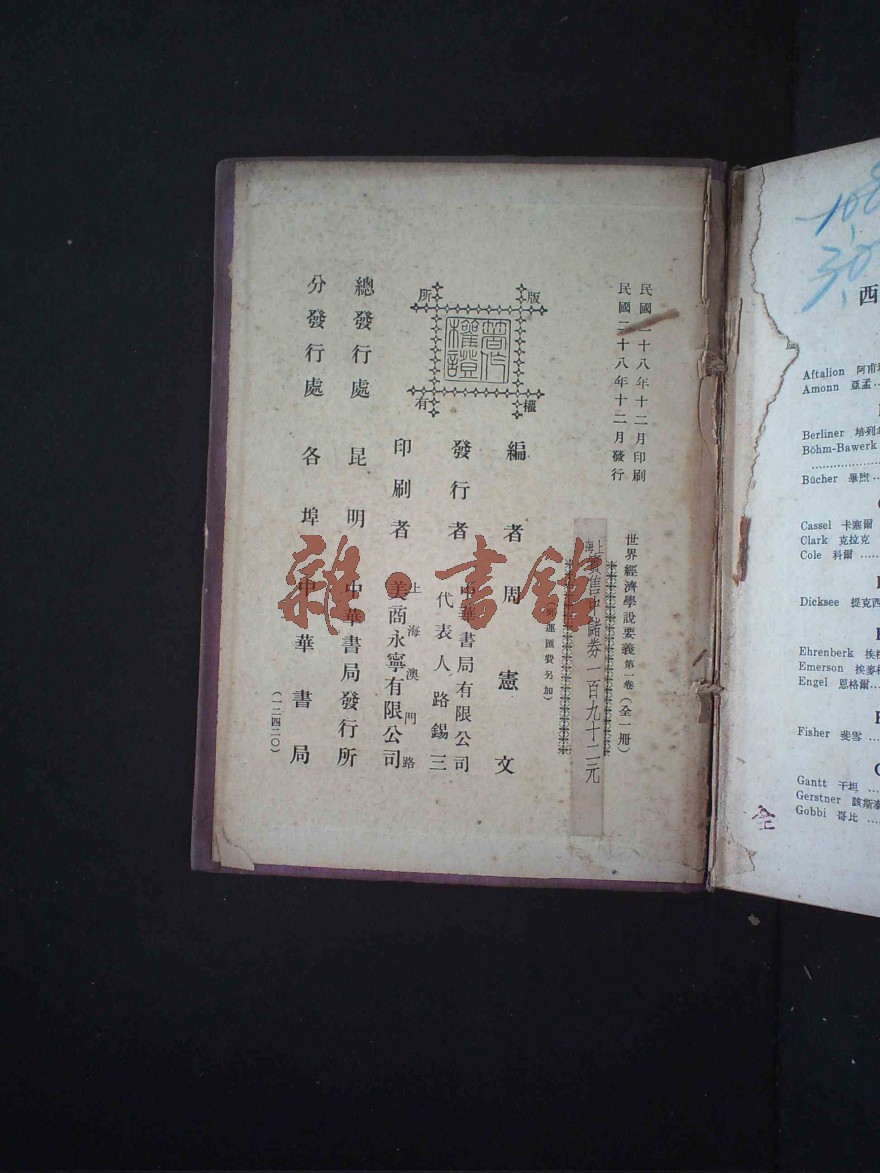 民國二十八年十二月印刷
民國二十八年十二月發行
世界經濟學說要義第一卷（全一冊）
上海
售中儲券一百九十二元
運匯費另加）
版權所有
著作權證
編者 周憲文
發行者 中華書局有限公司
代表人 路錫三
印刷者 上海澳門路
美商永寧有限公司
總發行處 昆明 中華書局發行所
分發行處 各埠 中華書局
（一二四二〇）
雜·書館
西
Aftalion
Amonn 亞孟
Berliner
Böhm-Bawerk
Bücher 畢煦
Cassel 卡塞爾
Clark 克拉克
Cole 科爾
Dicksee 提克西
Ehrenberk
Emerson
Engel 恩格爾
Fisher 斐雪
Gantt 干坦
Gerstner
Gobbi 哥比